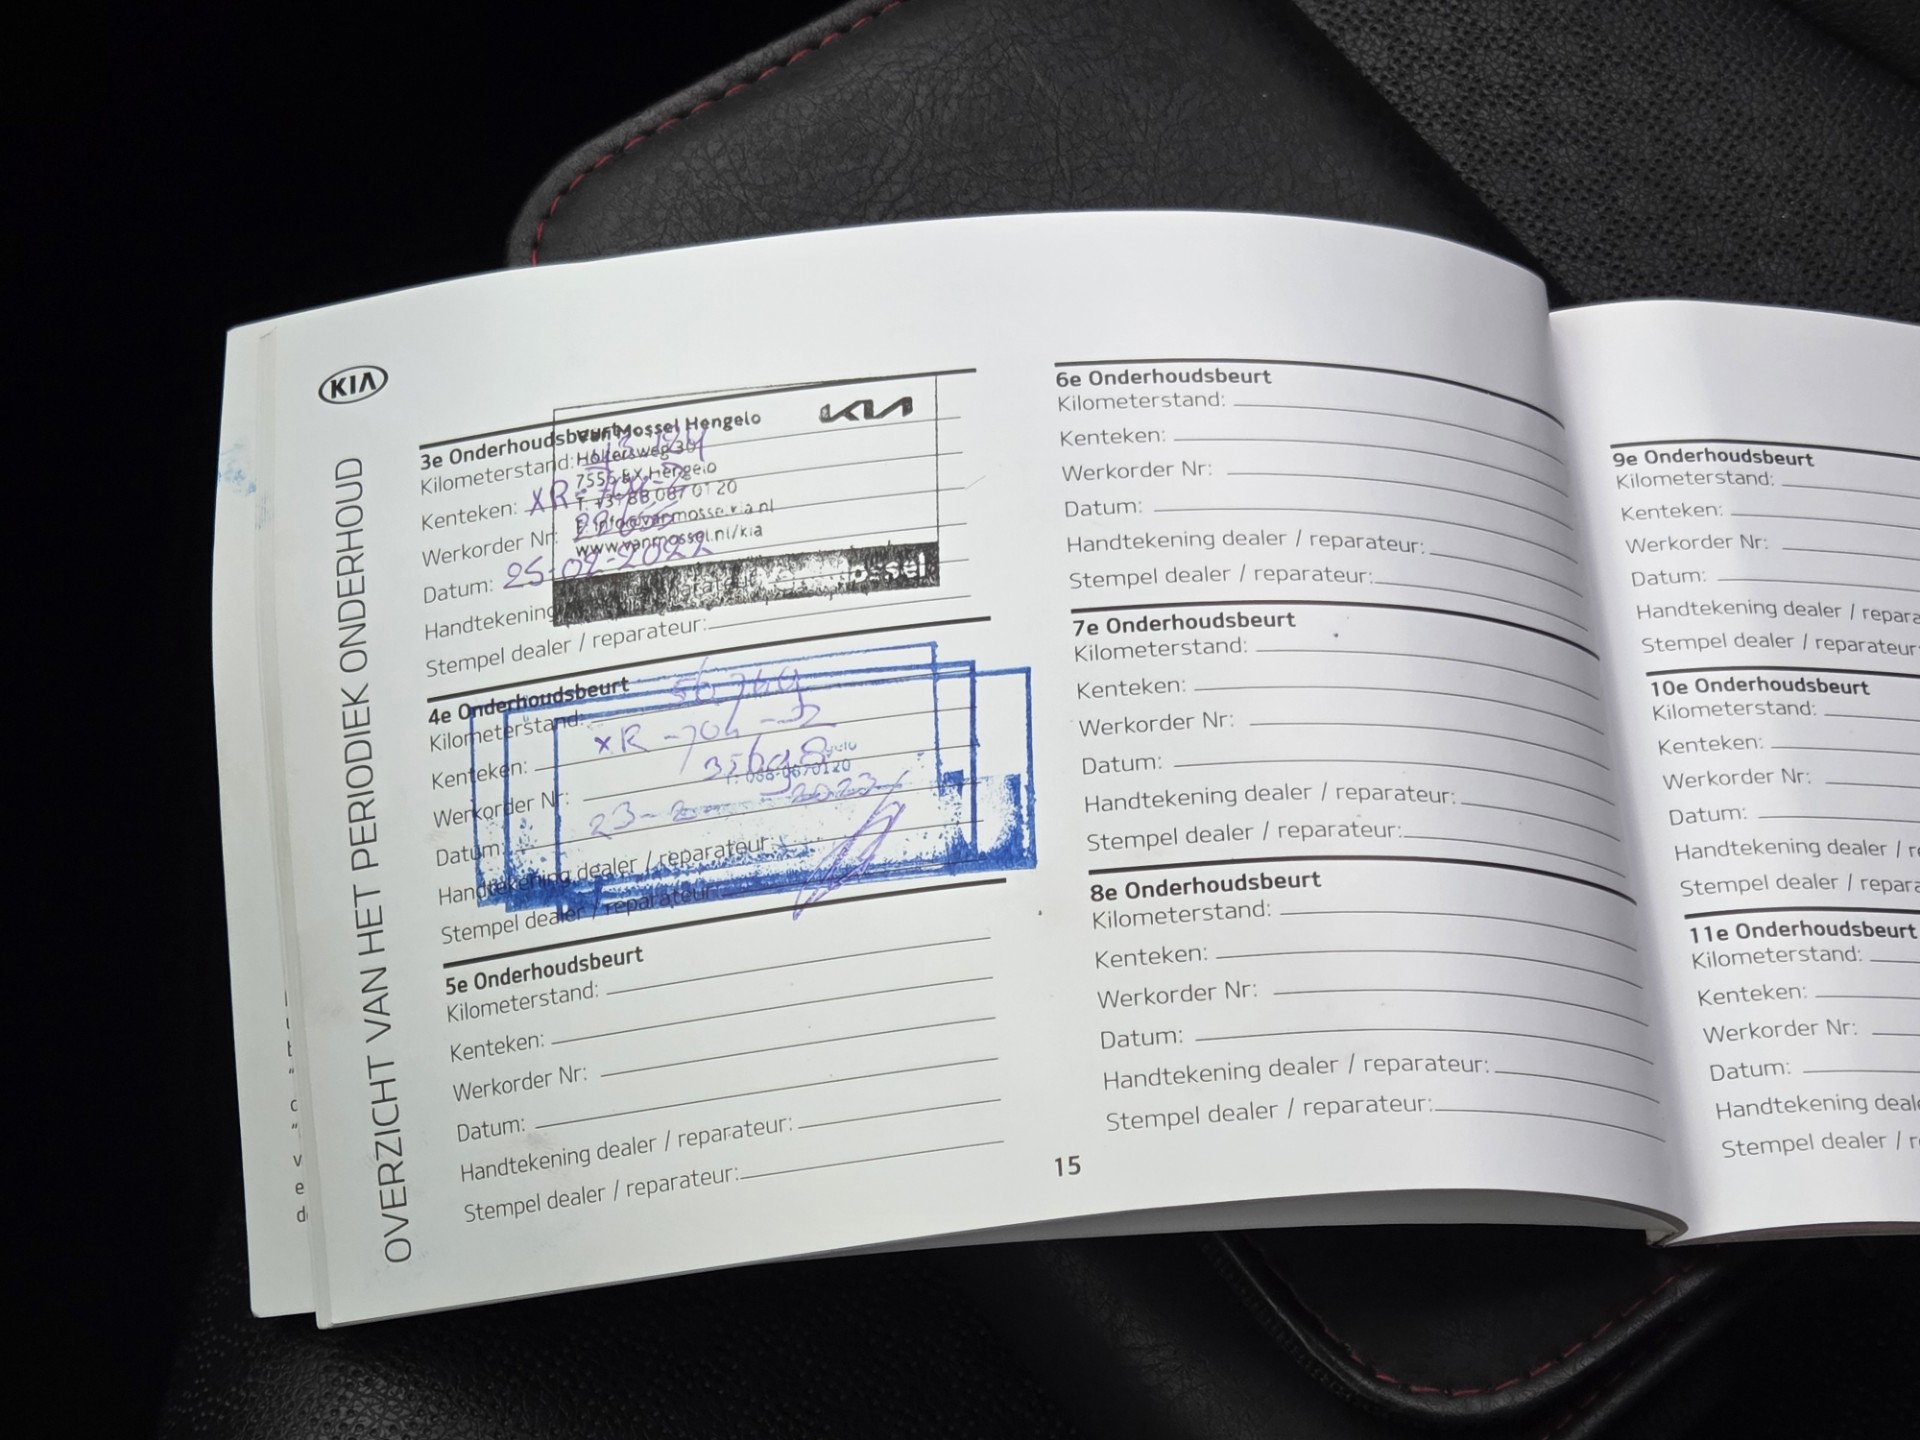 KIA
OVERZICHT VAN HET PERIODIEK ONDERHOUD
3e Onderhoudsbeurt
Van Mossel Hengelo
KIA
Kilometerstand:
Kenteken: XR-704-
7555 EX Hengelo
T. +31 88 007 01 20
Werkorder Nr:
www.vanmossel.nl/kia
Datum: 25-02-2022
van mossel
Handtekening
Stempel dealer / reparateur:
4e Onderhoudsbeurt
Kilometerstand: 56769
Kenteken: XR-704-
Werkorder Nr:
Datum: 23-2-2023
Handtekening dealer / reparateur:
Stempel dealer / reparateur:
5e Onderhoudsbeurt
Kilometerstand:
Kenteken:
Werkorder Nr:
Datum:
Handtekening dealer / reparateur:
Stempel dealer / reparateur:
6e Onderhoudsbeurt
Kilometerstand:
Kenteken:
Werkorder Nr:
Datum:
Handtekening dealer / reparateur:
Stempel dealer / reparateur:
7e Onderhoudsbeurt
Kilometerstand:
Kenteken:
Werkorder Nr:
Datum:
Handtekening dealer / reparateur:
Stempel dealer / reparateur:
8e Onderhoudsbeurt
Kilometerstand:
Kenteken:
Werkorder Nr:
Datum:
Handtekening dealer / reparateur:
Stempel dealer / reparateur:
15
9e Onderhoudsbeurt
Kilometerstand:
Kenteken:
Werkorder Nr:
Datum:
Handtekening dealer / repara
Stempel dealer / reparateur
10e Onderhoudsbeurt
Kilometerstand:
Kenteken:
Werkorder Nr:
Datum:
Handtekening dealer / r
Stempel dealer / repara
11e Onderhoudsbeurt
Kilometerstand:
Kenteken:
Werkorder Nr:
Datum:
Handtekening deal
Stempel dealer / r